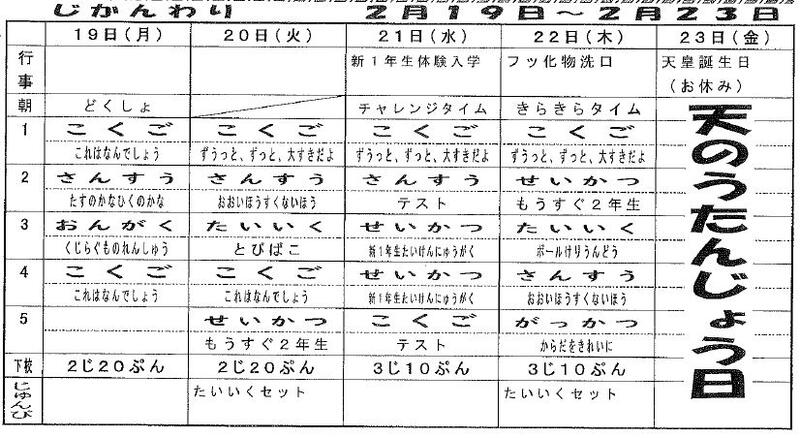 じかんわり　２月１９日～２月２３日
19日(月) 20日(火) 21日(水) 22日(木) 23日(金)
行事 新１年生体験入学 フッ化物洗口 天皇誕生日
(お休み)
朝 どくしょ チャレンジタイム きらきらタイム
1 こくご こくご こくご こくご
これはなんでしょう ずうっと、ずっと、大すきだよ ずうっと、ずっと、大すきだよ ずうっと、ずっと、大すきだよ
2 さんすう さんすう さんすう せいかつ
たすのかなひくのかな おおいほうすくないほう テスト もうすぐ２年生
3 おんがく たいいく せいかつ たいいく
くじらぐものれんしゅう とびばこ 新１年生たいけんにゅうがく ボールけりうんどう
4 こくご こくご せいかつ さんすう
これはなんでしょう これはなんでしょう 新１年生たいけんにゅうがく おおいほうすくないほう
5 せいかつ こくご がっかつ
もうすぐ２年生 テスト からだをきれいに
下校 2じ20ぷん 2じ20ぷん 3じ10ぷん 3じ10ぷん
じゅんび たいいくセット たいいくセット
天のうたんじょう日